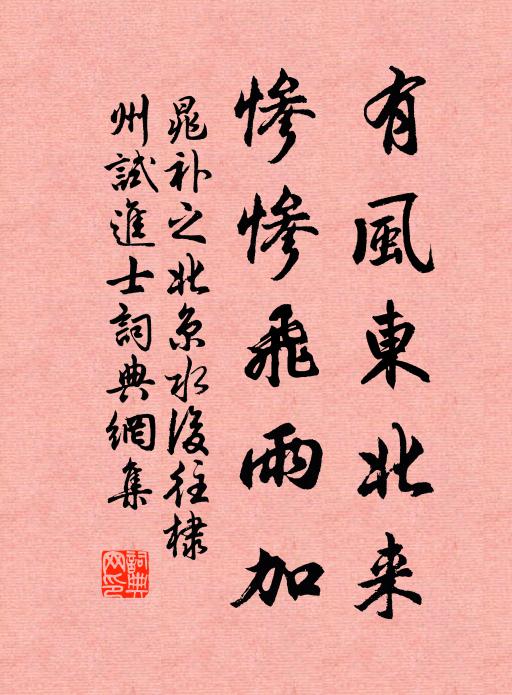 有風東北来
慘慘飛雨加
晁补之北京水後往棣
州試進士詞典網集
詞典
网印